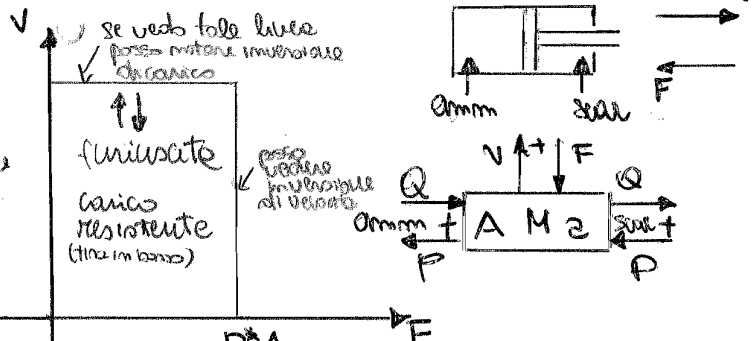 V
se vedo tale linea
posso notare inversione
di carico
furiuscita
carico
resistente
(tira in basso)
posso
vedere
inversione
di velocità
F
amm
scar
F
V + F
Q Q
amm + A M a scar +
P P